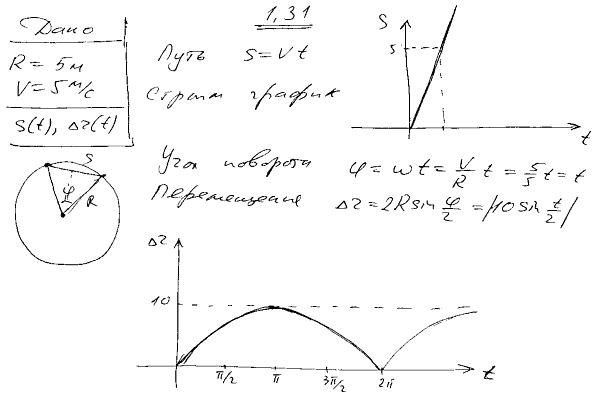 1,31
Дано
R = 5м
V = 5 м/с
S(t), Δr(t)
Путь S = Vt
Строим график
S
5
t
S
φ/2
R
Угол поворота φ = ωt = V/R t = 5/5 t = t
Перемещение Δr = 2R sin φ/2 = |10 sin t/2|
Δr
10
π/2 π 3π/2 2π t